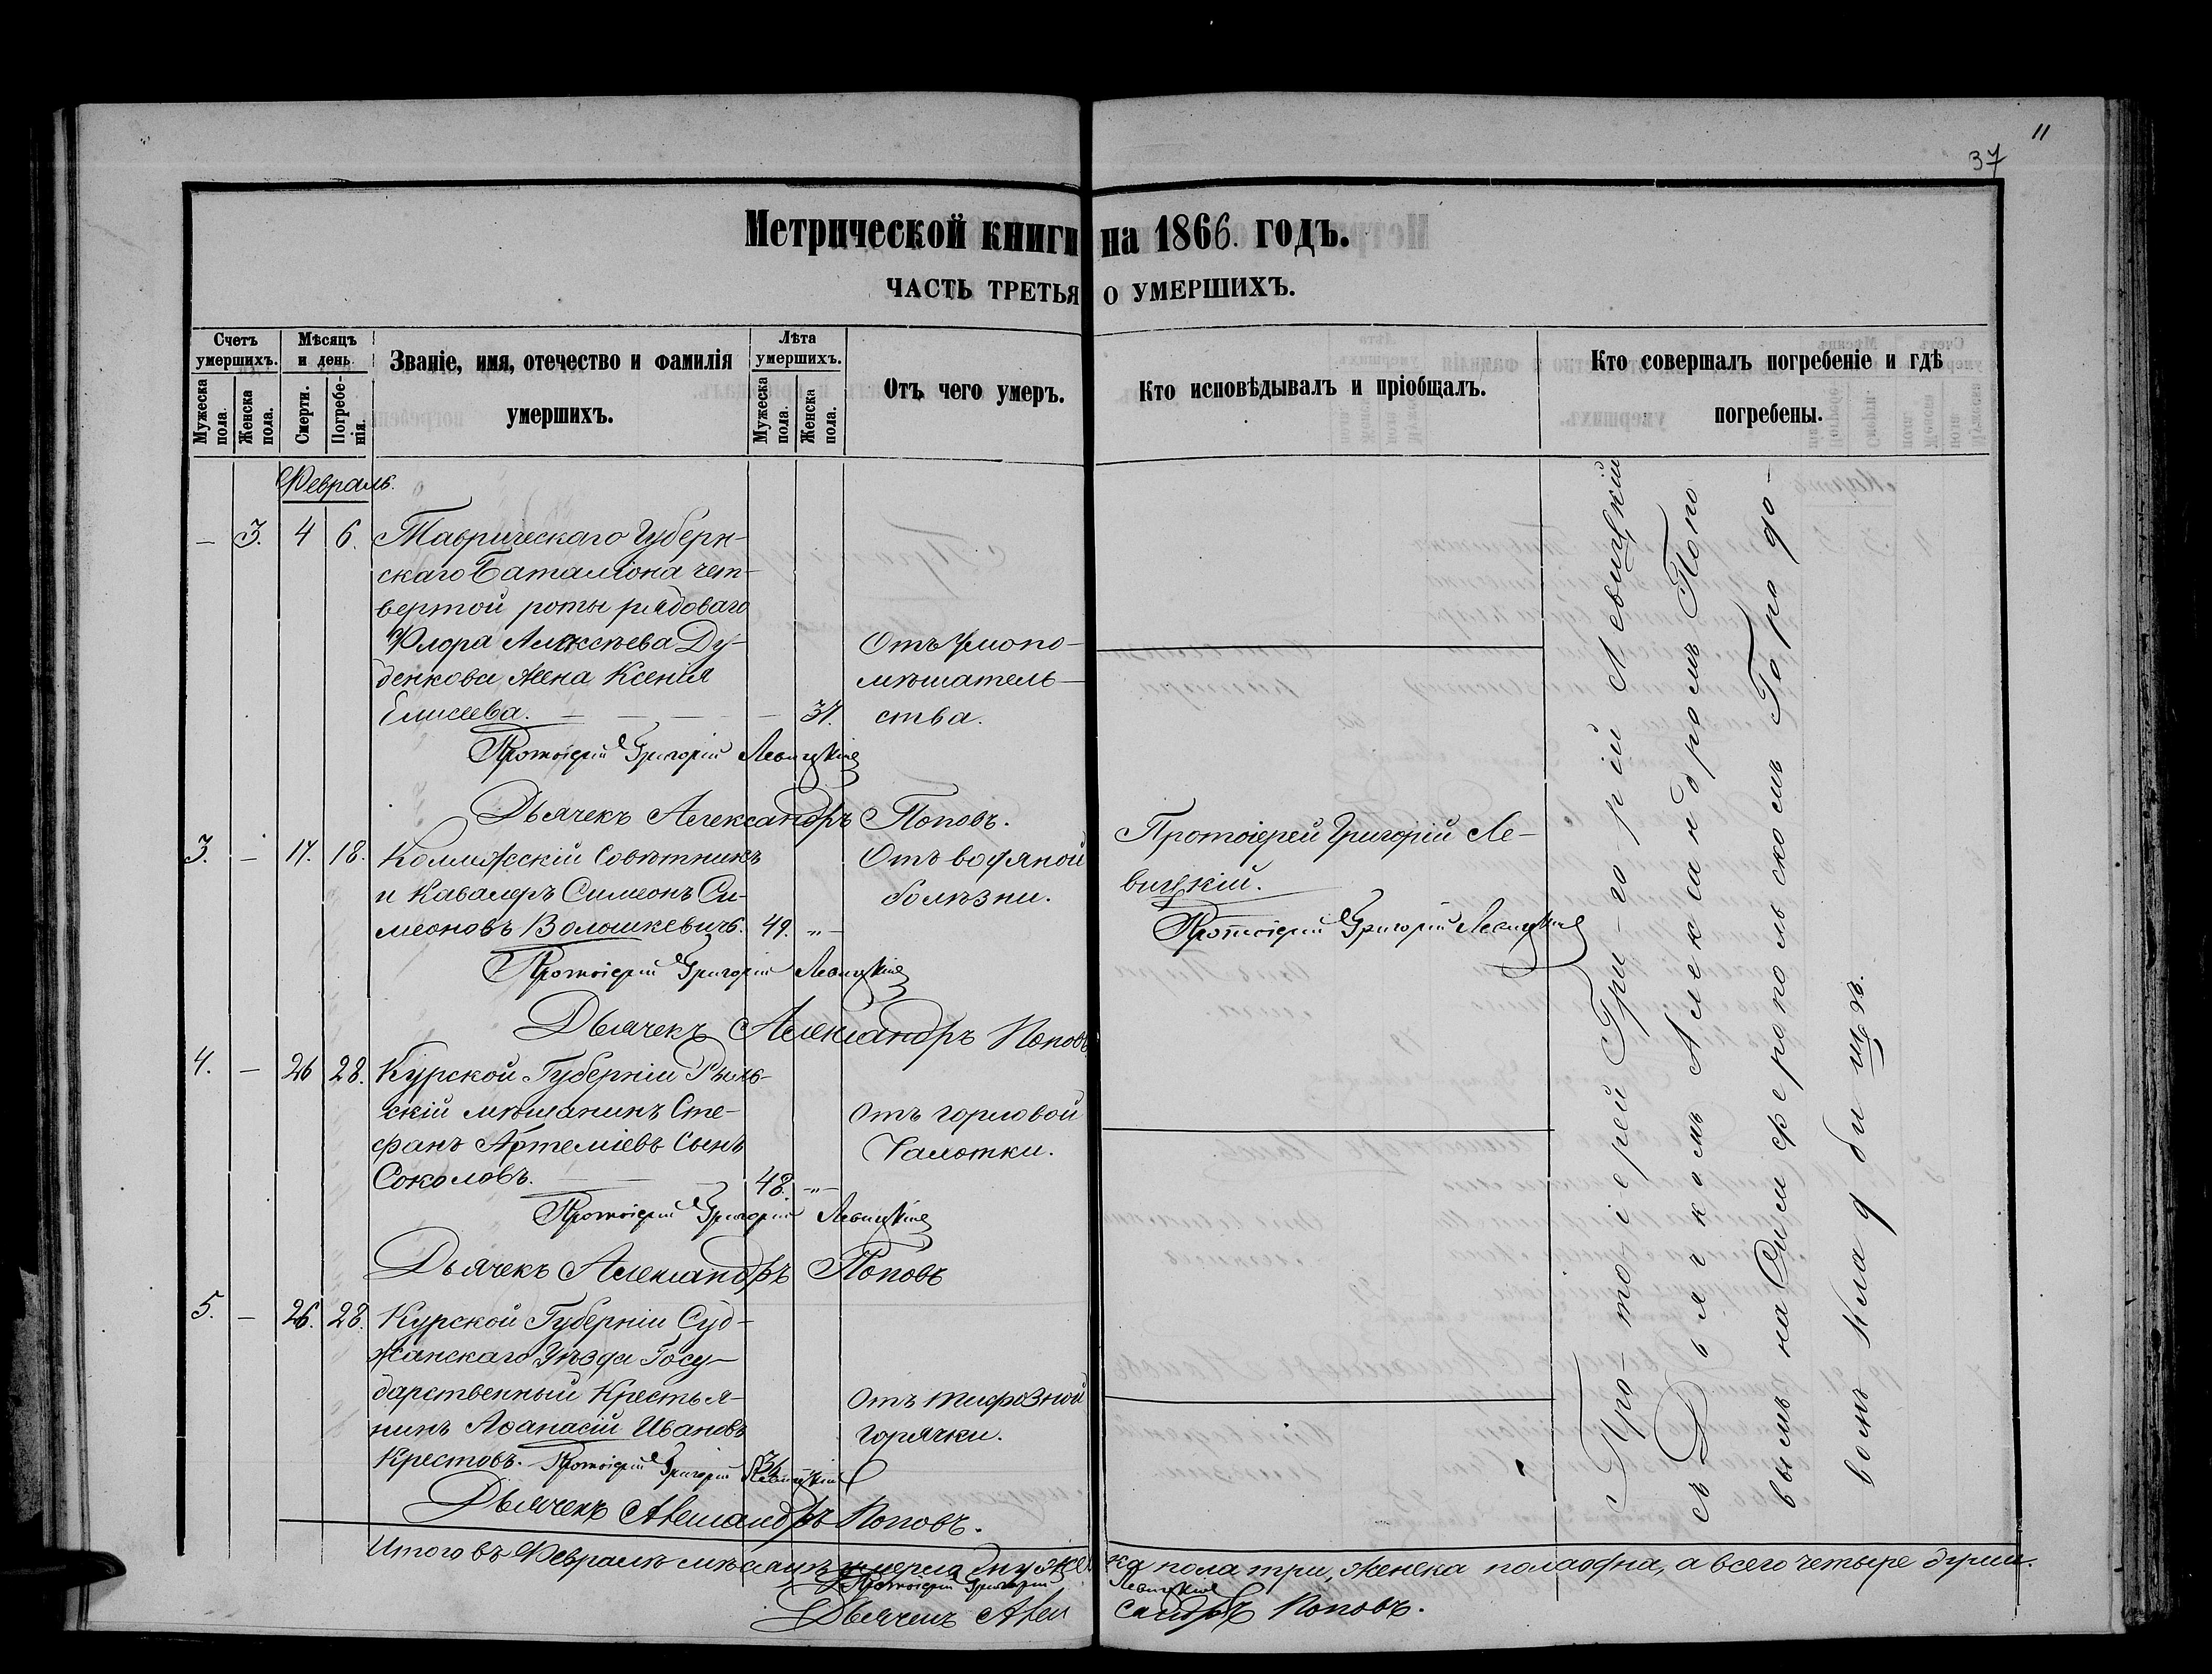 11
37
Метрической книги на 1866. годъ.
ЧАСТЬ ТРЕТЬЯ О УМЕРШИХЪ.
Счетъ умершихъ.
Мужеска пола.
Женска пола.
Мѣсяцъ и день
Смерти.
Погребе-
нія.
Званіе, имя, отечество и фамилія
умершихъ.
Лѣта умершихъ.
Мужеска пола.
Женска пола.
Отъ чего умеръ.
Кто исповѣдывалъ и пріобщалъ.
Кто совершалъ погребеніе и гдѣ
погребены.
Февраль.
— 3. 4 6. Таврическаго Губерн-
скаго Баталіона чет-
вертой роты рядоваго
Флора Алексѣева Ду-
денкова жена Ксенія
Елисеева. 37.
Отъ умопо-
мѣшатель-
ства.
Протоіерей Григорій Левицкій
Дьячекъ Александръ Поповъ.
3. — 17. 18. Коллежскій Совѣтникъ
и Кавалеръ Симеонъ Си-
меоновъ Волошкевичъ. 49. „—
Отъ водяной
болѣзни.
Протоіерей Григорій Ле-
вицкій.
Протоіерей Григорій Левицкій
Протоіерей Григорій Левицкій
Дьячекъ Александръ Поповъ
4. — 26 28. Курской Губерніи Рыль-
скій мѣщанинъ Сте-
фанъ Артеміевъ Сынъ
Соколовъ. 48. -„-
Отъ горловой
Чахотки.
Протоіерей Григорій Левицкій
Дьячекъ Александръ Поповъ
5. — 26. 28. Курской Губерніи Суд-
жанскаго Уѣзда Госу-
дарственный Крестья-
нинъ Аѳанасій Ивановъ
Крестовъ.
Отъ тифозной
горячки.
Протоіерей Григорій Левицкій
Дьячекъ Александръ Поповъ.
Про-тоіерей Гри-горій Левицкій
съ Дьячкомъ Александромъ Попо
вымъ на Симферопольскомъ Городо-
вомъ кладбищѣ.
Итого въ Февралѣ мѣсяцѣ умерло мужеска пола три, женска пола одна, а всего четыре души.
Протоіерей Григорій Левицкій
Дьячекъ Александръ Поповъ.